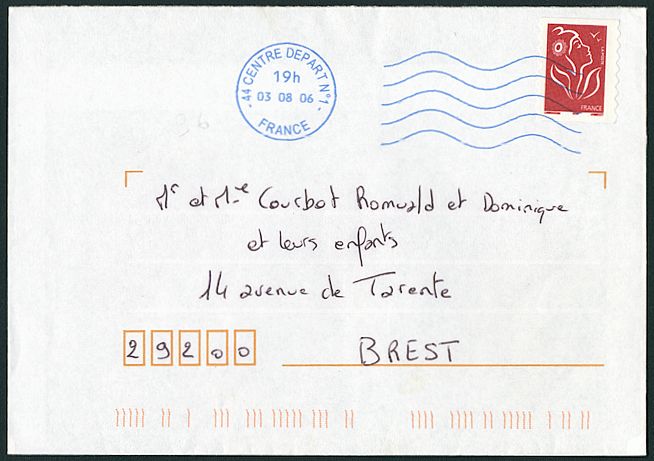 44 CENTRE DEPART N°1
19h
03 08 06
FRANCE
LA POSTE
FRANCE
Mr et Mme Courbot Romuald et Dominique
et leurs enfants
14 avenue de Tarente
29200 BREST